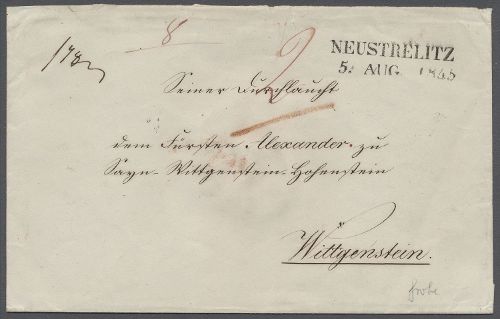 8
2
NEUSTRELITZ
5. AUG. 1845
Seiner Durchlaucht
dem Fürsten Alexander zu
Sayn-Wittgenstein-Hohenstein
Wittgenstein.